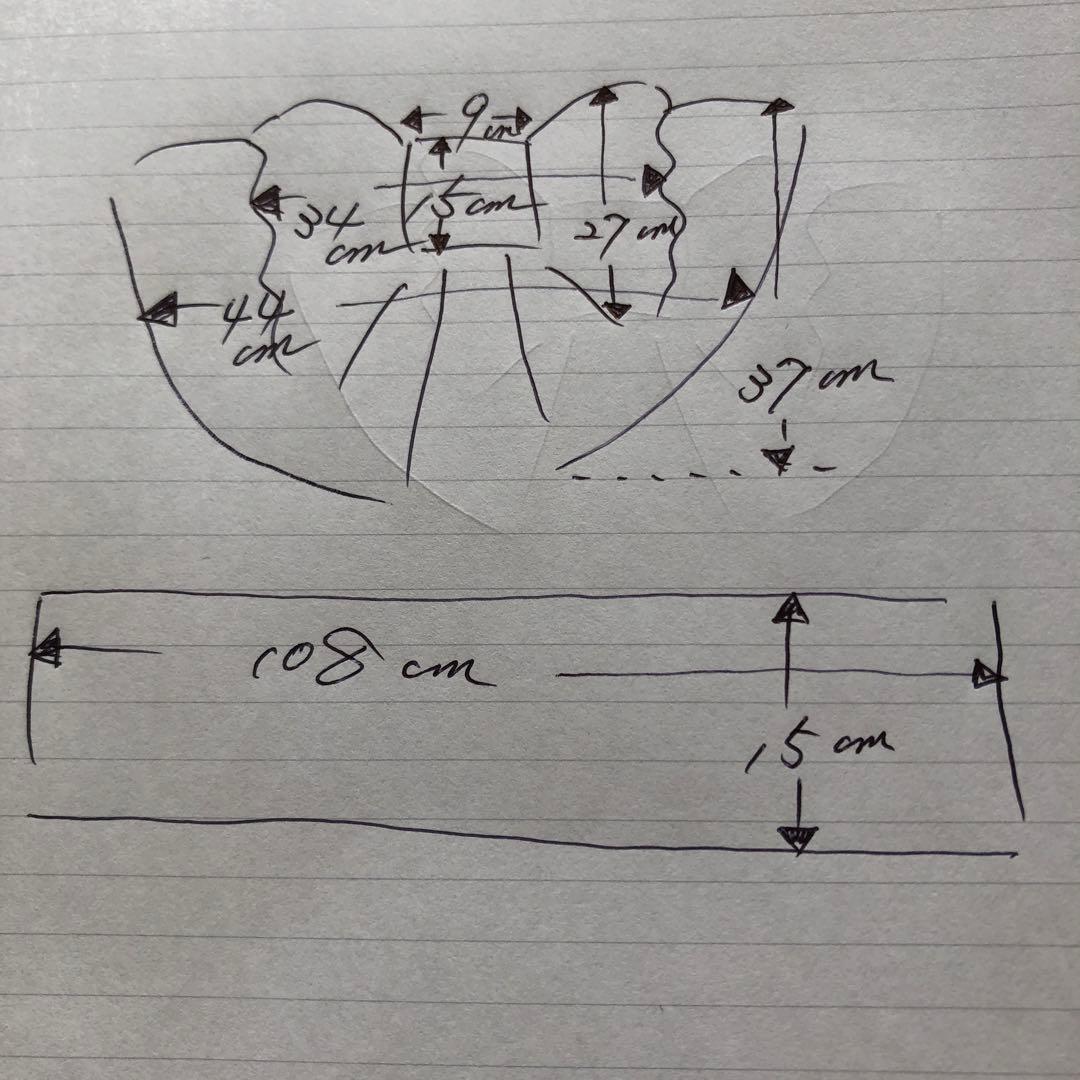 9 cm
34 cm
15 cm
27 cm
44 cm
37 cm
108 cm
15 cm